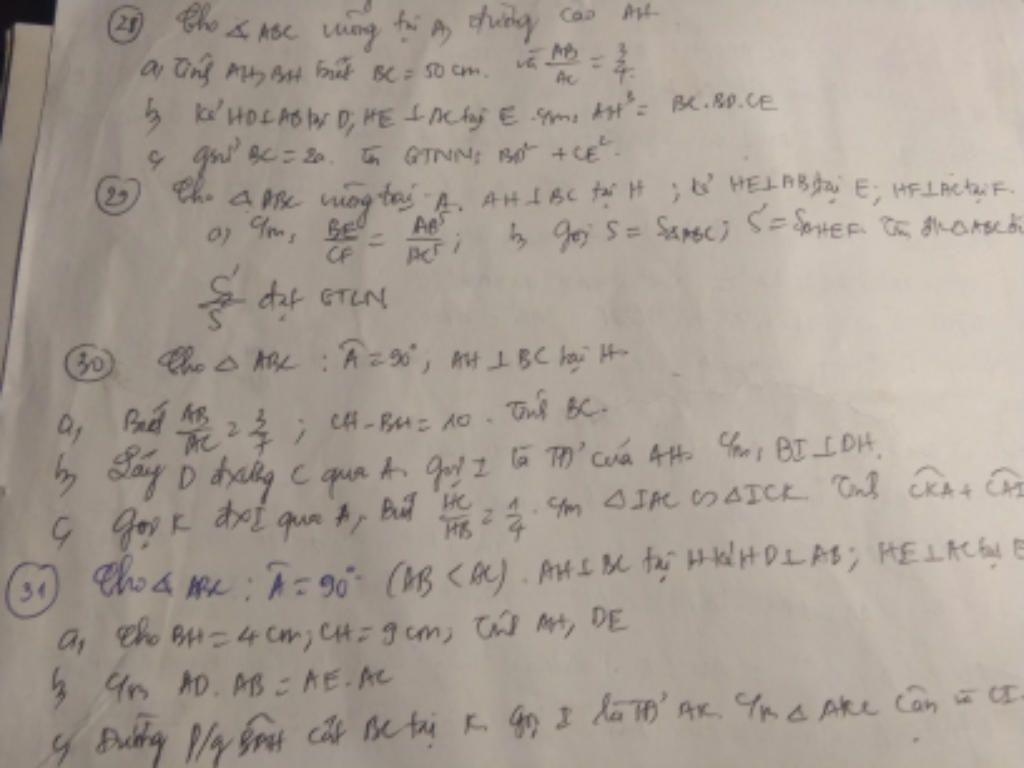 28 Cho △ ABC vuông tại A, đường cao AH
a, Tính AH, BH biết BC = 50 cm. và AB/AC = 3/4.
b, kẻ HD⊥AB tại D, HE ⊥ AC tại E. Cm, AH³ = BC.BD.CE
c, giả sử BC = 2a. Tìm GTNN: BD² + CE².
29 Cho △ ABC vuông tại A. AH⊥BC tại H ; kẻ HE⊥AB tại E; HF⊥AC tại F.
a, Cm, BE/CF = AB³/AC³; b, Gọi S = S△ABC; S' = S△HEF. Tìm đk △ABC để
S'/S đạt GTLN
30 Cho △ ABC : Â = 90°, AH ⊥ BC tại H
a, Biết AB/AC = 3/7 ; CH - BH = 10. Tính BC.
b, Lấy D đxứng C qua A. Gọi I là TĐ' của AH. Cm, BI ⊥ DH.
c, Gọi K đx I qua A, Biết HC/HB = 1/4. Cm △IAC ∽ △ICK. Tính CKA + CAI
31 Cho △ ABC : Â = 90° (AB < AC). AH⊥BC tại H kẻ HD⊥AB; HE⊥AC tại E
a, Cho BH = 4 cm; CH = 9 cm, Tính AH, DE
b, Cm AD.AB = AE.AC
c, Đường p/g BAH cắt BC tại K. Gọi I là TĐ' AK. Cm △ AKC cân và CI